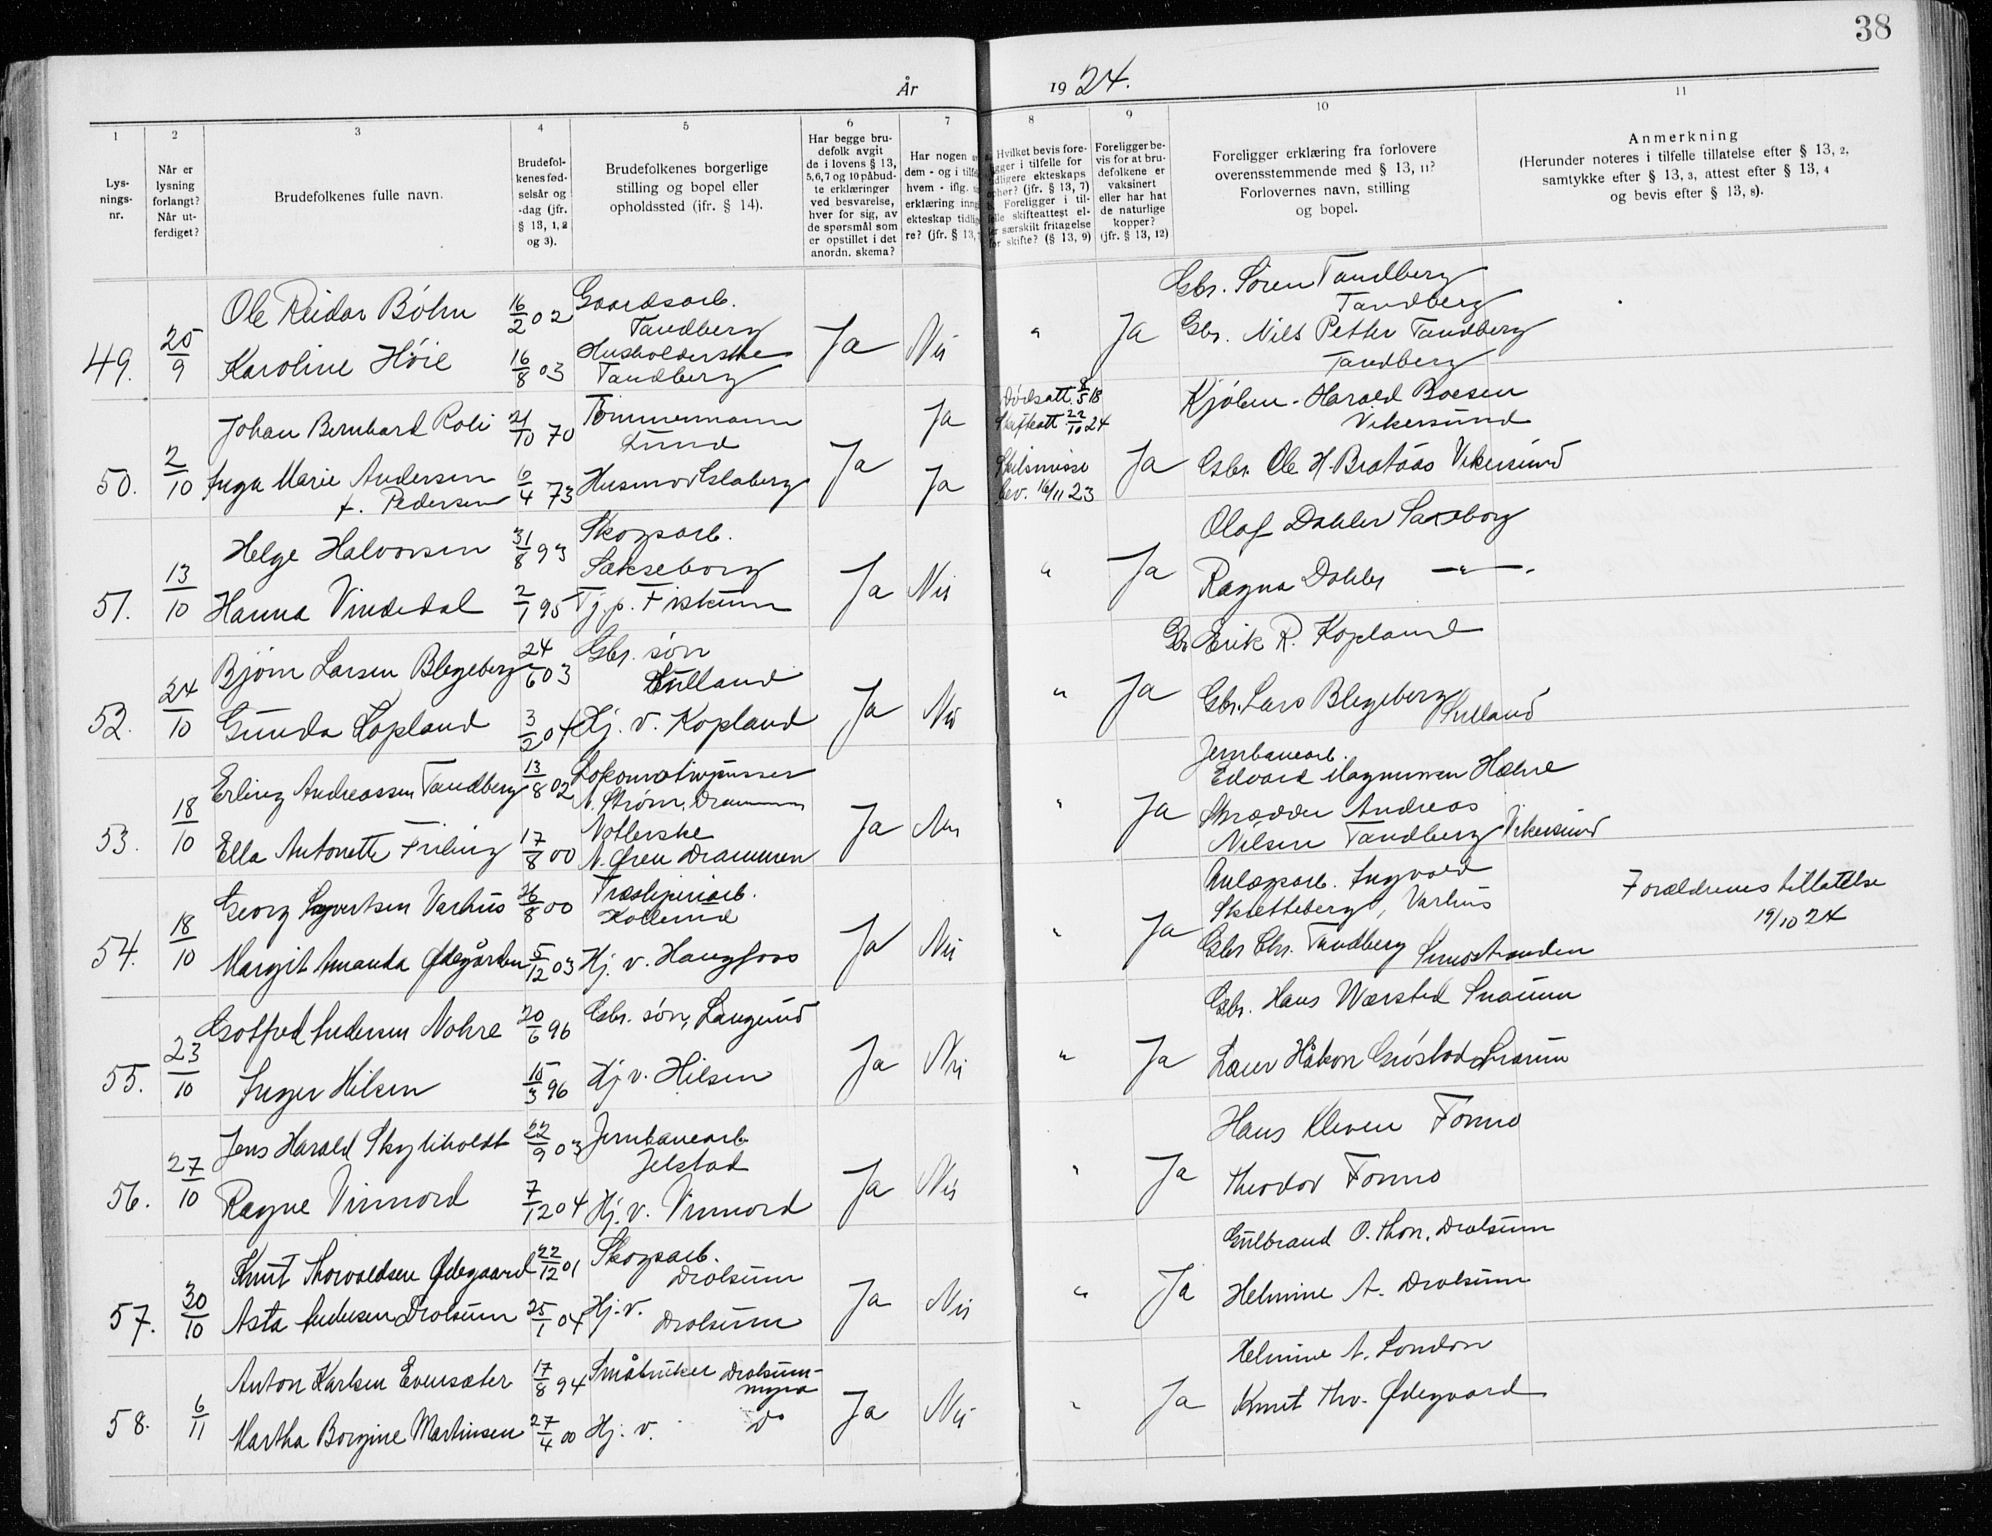 38
År 1924.
1
2
3
4
5
6
7
8
9
10
11
Lys-
nings-
nr.
Når er
lysning
forlangt?
Når ut-
ferdiget?
Brudefolkenes fulle navn.
Brudefol-
kenes fød-
selsår og
-dag (jfr.
§ 13, 1, 2
og 3).
Brudefolkenes borgerlige
stilling og bopel eller
opholdssted (ifr. § 14).
Har begge bru-
defolk avgit
de i lovens § 13,
5,6,7 og 10 påbud-
te erklæringer
ved besvarelse,
hver for sig, av
de spørsmål som
er opstillet i det
anordn. skema?
Har nogen
dem - og i tilf
hvem - iflg.
erklæring inng
ekteskap tidlig
re? (jfr. § 13,
Hvilket bevis fore-
ligger i tilfelle for
tidligere ekteskaps
ophør? (jfr. § 13, 7)
Foreligger i til-
felle skifteattest el-
ler særskilt fritagelse
for skifte? (§ 13, 9)
Foreligger be-
vis for at bru-
defolkene er
vaksinert
eller har hat
de naturlige
kopper?
(jfr. § 13, 12)
Foreligger erklæring fra forlovere
overensstemmende med § 13, 11?
Forlovernes navn, stilling
og bopel.
Anmerkning
(Herunder noteres i tilfelle tillatelse efter § 13, 2,
samtykke efter § 13, 3, attest efter § 13, 4
og bevis efter § 13, 8).
49. 25/9 Ole Reidar Bøhn 16/2 02 Gaardsarb. Tandberg
Karoline Høie 16/8 03 Husholderske Tandberg
Ja Nei " Ja
Gbr. Søren Tandberg
Tandberg
Gbr. Nils Petter Tandberg
Tandberg
50. 2/10 Johan Bernhard Roli 21/10 70 Tømmermann Lund
Inga Marie Andersen 6/4 73 Husmor
f. Pedersen
Ja Ja Ja
Dødsatt. 18
Skifteatt 22/10 24
Skilsmisse
bev. 16/11 23
Ja
Kjøbm. Harald Boesen
Vikersund
Gbr. Ole H. Brataas Vikersund
51. 13/10 Helge Halvorsen 31/8 93 Skogsarb.
Sakseborg
Hanna Vindedal 2/1 95 Tj. p. Fiskum
Ja Nei " Ja
Olaf Dahler Sakseborg
Ragna Dahler — " —
52. 24/10 Bjørn Larsen Blegeberg 24/6 03 Gbr. søn
Lulland
Gunda Kopland 3/2 04 Hj. v. Kopland
Ja Nei " Ja
Gbr Erik R. Kopland
Gbr. Lars Blegeberg
53. 18/10 Erling Andreassen Tandberg 13/8 02 Lokomotivpusser
N. Strøm, Drammen
Ella Antonette Friling 17/8 00
N. Øren Drammen
Ja Nei " Ja
Jernbanearb.
Edvard Magnussen Hæhre
Skrædder Andreas
Nilsen Tandberg Vikersund
54. 18/10 Georg Syvertsen Varhus 26/8 00 Træsliperiarb.
Margit Amanda Ødegården 5/12 03 Hj. v. Haugfoss
Ja Nei " Ja
Anlægsarb. Ingvald
Skretteberg, Varhus
Gbr Chr. Tandberg Snarestranden
Forældrenes tillatelse
19/10 24
55. 23/10 Gotfred Andersen Nohre 20/6 96 Gbr. søn, Langerud
Inger Hilsen 15/3 96 Hj v. Hilsen
Ja Nei " Ja
Gbr. Hans Wærsted Snarum
Lærer Håkon Grøstad Snarum
56. 27/10 Jens Harald Skyliholdt 22/9 03 Jernbanearb
Jelstad
Ragne Vinnord 7/12 04 Hj. v. Vinnord
Ja Nei " Ja
Hans Kleven Fonno
Theodor Fonno
57. 30/10 Knut Thorvaldsen Ødegaard 22/12 01 Skogsarb.
Drolsum
Asta Andersen Drolsum 25/1 04 Hj. v.
Drolsum
Ja Nei " Ja
Gulbrand O. Thon, Drolsum
Helmine A. Drolsum
58. 6/11 Anton Karlsen Evensæter 17/8 94 Småbruker Drolsum-
myra
Martha Borgine Martinsen 27/4 00 Hj. v. Do
Ja Nei " Ja
Helmine A. London
Knut Thv. Ødegaard